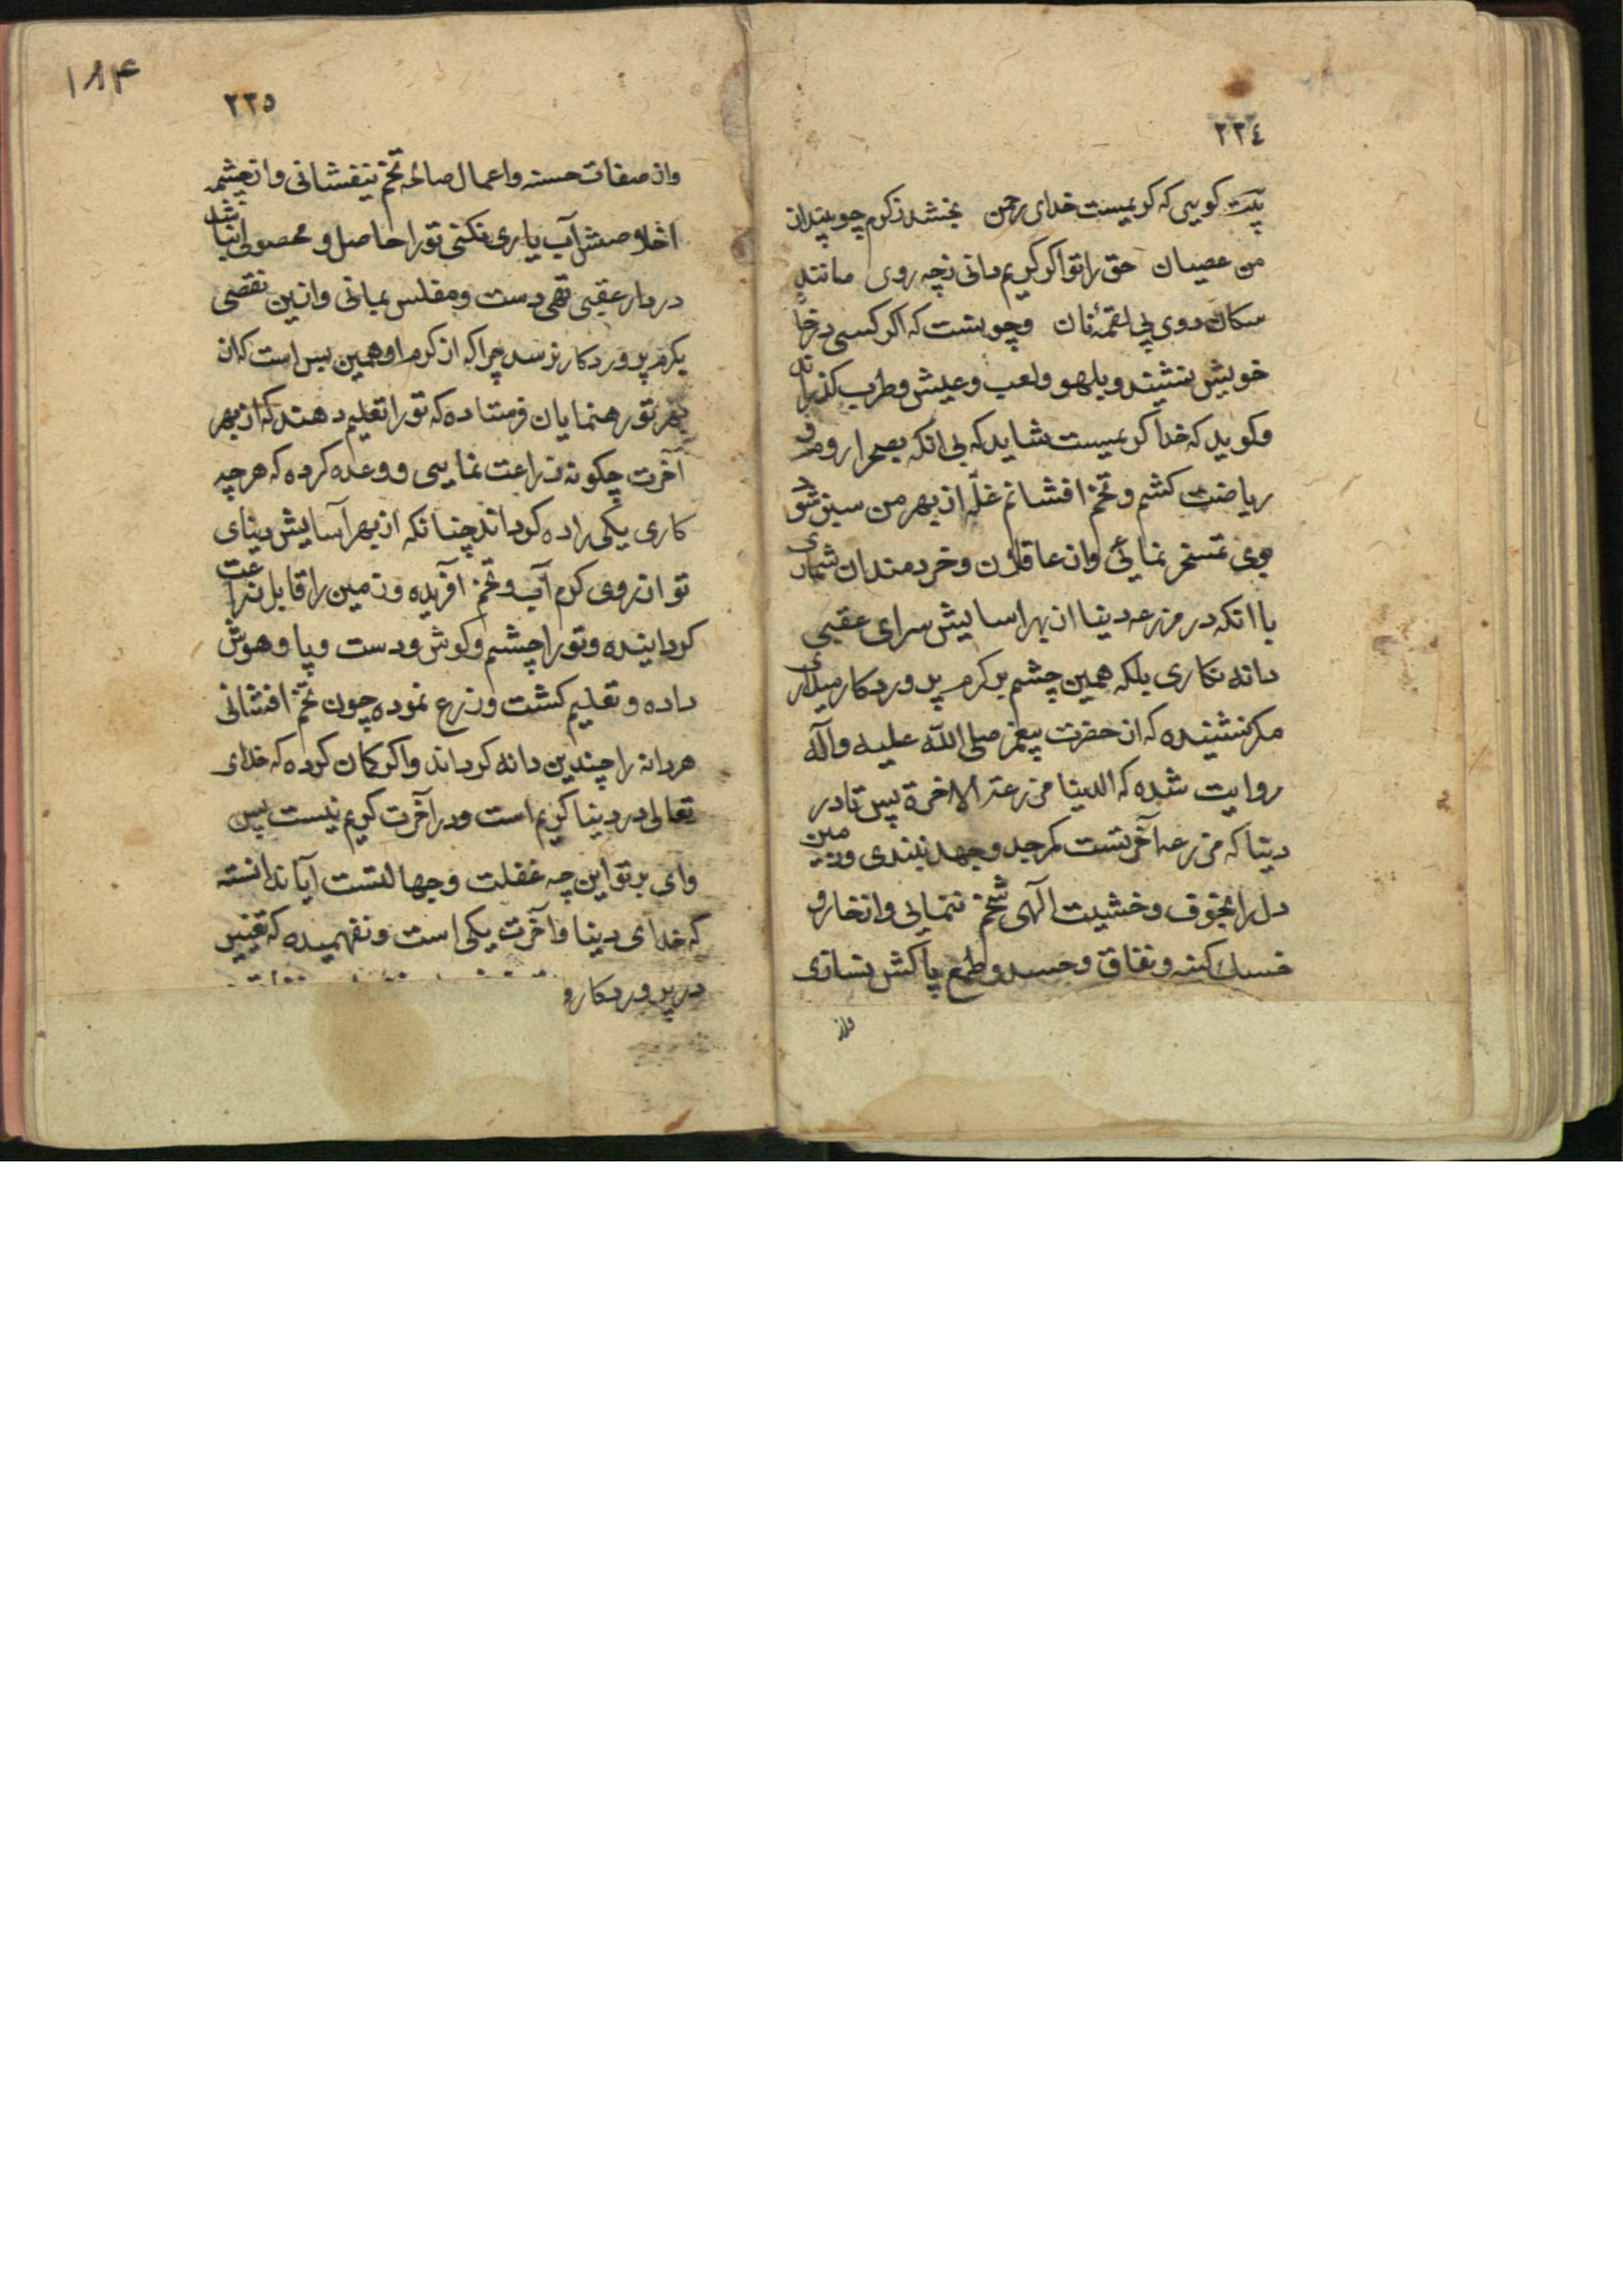 ٢٢٤
بیت کویی که کریمیست خدای رحمن بخشد زکرم چو بیند از
من عصیان حق را تو اکر کریم دانی زچه روی مانند
سکان دوی پی لقمهٔ نان وچو تست که اکر کسی در خانهٔ
خویش بنشیند و بلهو ولعب وعیش وطرب کذراند
وکوید که خدا کریمیست شاید که بی انکه بصحرا روم و
ریاضت کشم و تخم افشانم غلّه از بهر من سبز شود
بوی تمسخر نمائی وان عاقلان وخردمندان شماری
با انکه در مزرعه دنیا از بهر اسایش سرای عقبی
دانه نکاری بلکه همین چشم بر کرم پروردکار میداری
مکر نشنیده که از حضرت پیغمبر صلی الله علیه وآله
روایت شده که الدنیا مزرعة الاخرة پس تا در
دنیا که مزرعه آخرتست کمر جد وجهد نبندی وزمین
دل را بخوف وخشیت الهی شخم ننمایی واز خار و
خسک کینه ونفاق وحسد وطمع پاکش نسازی
واز
١٨۴
٢٢٥
واز صفات حسنه واعمال صالحه تخم نیفشانی واز چشمه
اخلاصش آب یاری نکنی تو را حاصل و محصولی نباشد
در دار عقبی تهی دست ومفلس بمانی وازین نقصی
بکرم پروردکار نرسد چرا که از کرم او همین بس است که از
بهر تو رهنمایان فرستاده که تو را تعلیم دهند که از بهر
آخرت چکونه زراعت نمایی و وعده کرده که هر چه
کاری یکی را ده کرداند چنانکه از بهر آسایش دنیای
تو از روی کرم آب و تخم آفریده وزمین را قابل زراعت
کردانیده وتو را چشم وکوش ودست وپا وهوش
داده و تعلیم کشت وزرع نموده چون تخم افشانی
هر دانه را چندین دانه کرداند واکر کمان کرده که خدای
تعالی در دنیا کریم است ودر آخرت کریم نیست پس
وای بر تو این چه غفلت وجهالتست آیا ندانسته
که خدای دنیا وآخرت یکی است ونفهمیده که تغییر
در پروردکار و